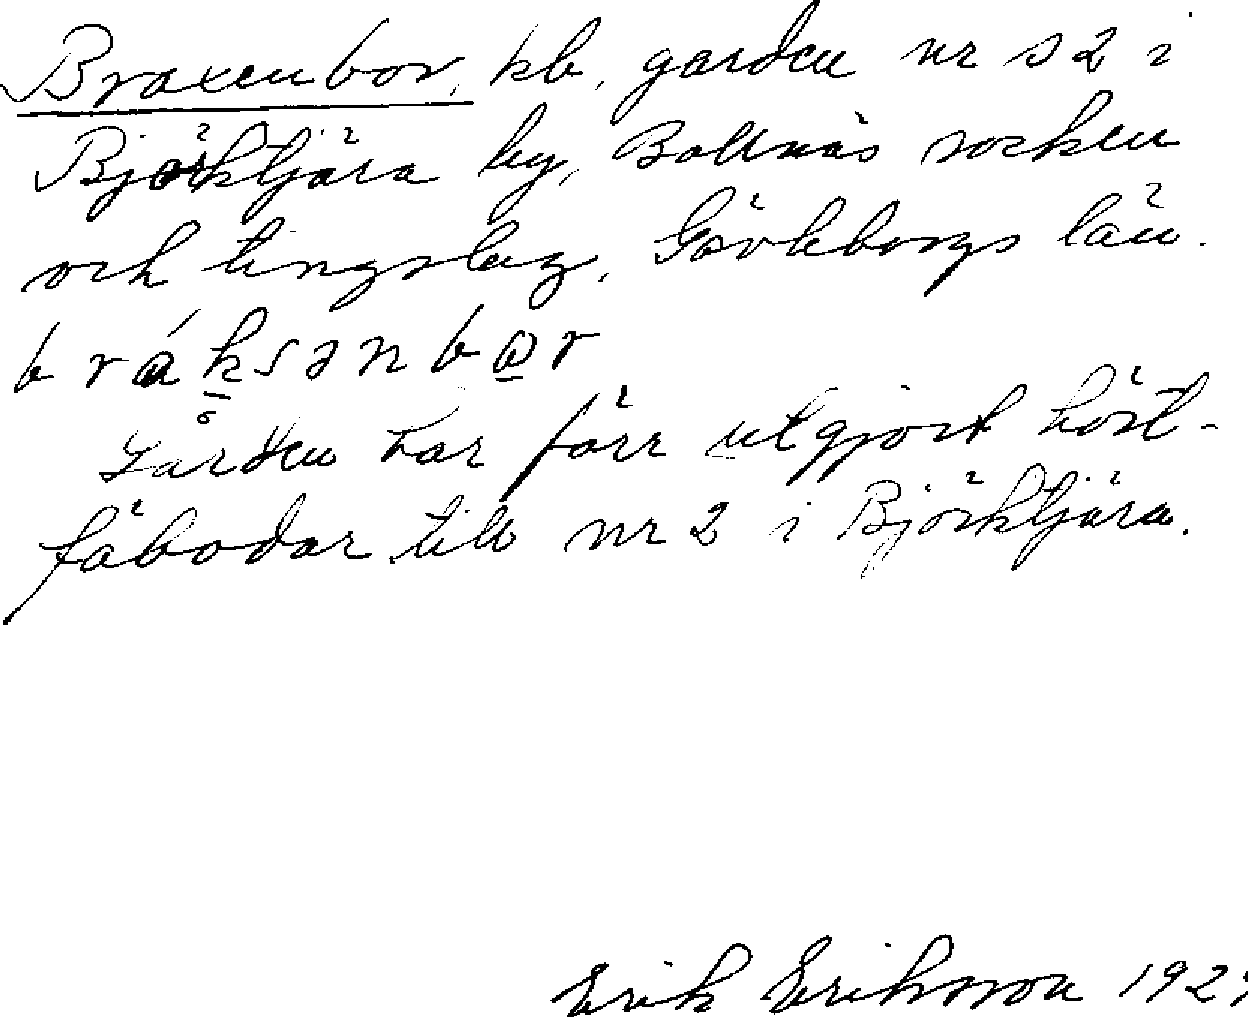 Braxenbor, kb, gården nr s 2 i
Björktjära by, Bollnäs socken
och tingslag, Gävleborgs län.
bráksənbɷr
Gården har förr utgjort höst-
fäbodar till nr 2 i Björktjära.
Erik Eriksson